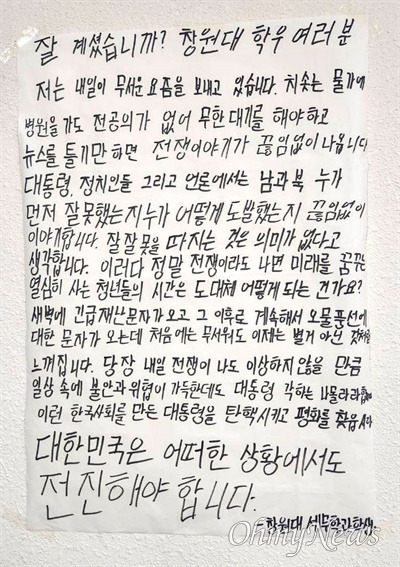 잘 계셨습니까? 창원대 학우 여러분
저는 내일이 무서운 요즘을 보내고 있습니다. 치솟는 물가에
병원을 가도 전공의가 없어 무한대기를 해야하고
뉴스를 틀기만 하면 전쟁이야기가 끊임없이 나옵니다
대통령, 정치인들 그리고 언론에서는 남과 북 누가
먼저 잘못했는지 누가 어떻게 도발했는지 끊임없이
이야기합니다. 잘잘못을 따지는 것은 의미가 없다고
생각합니다. 이러다 정말 전쟁이라도 나면 미래를 꿈꾸는
열심히 사는 청년들의 시간은 도대체 어떻게 되는 건가요?
새벽에 긴급재난문자가 오고 그 이후로 계속해서 오물풍선에
대한 문자가 오는데 처음에는 무서워도 이제는 별거 아닌 것처럼
느껴집니다. 당장 내일 전쟁이 나도 이상하지 않을 만큼
일상 속에 불안과 위협이 가득한데도 대통령 각하는 나몰라라
이런 한국사회를 만든 대통령을 탄핵시키고 평화를 찾읍시다
대한민국은 어떠한 상황에서도
전진해야 합니다.
-창원대 세무학과 학생-
OhmyNews